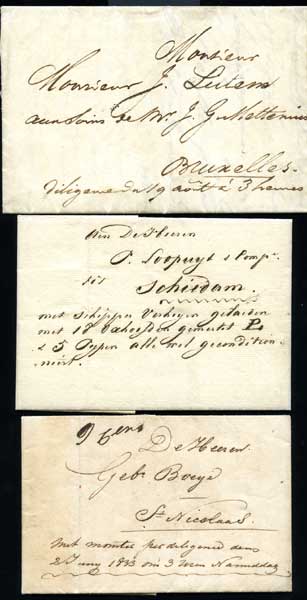 Monsieur
Monsieur J. Lutens
aux soins de Mr J. G. Mettenius
Bruxelles
diligence du 19 août à 3 heures
Aan De Heeren
P. Loopuyt & Comp.
tot
Schiedam.
met Schipper Verheyen geladen
met 18 gemerkt
& 5 Pypen alle wel gecondition
neert.
De Heeren
Gebr Boeye
St Nicolaas.
Met monster per diligence dans
2 Juny 1833 om 3 uren Namiddag